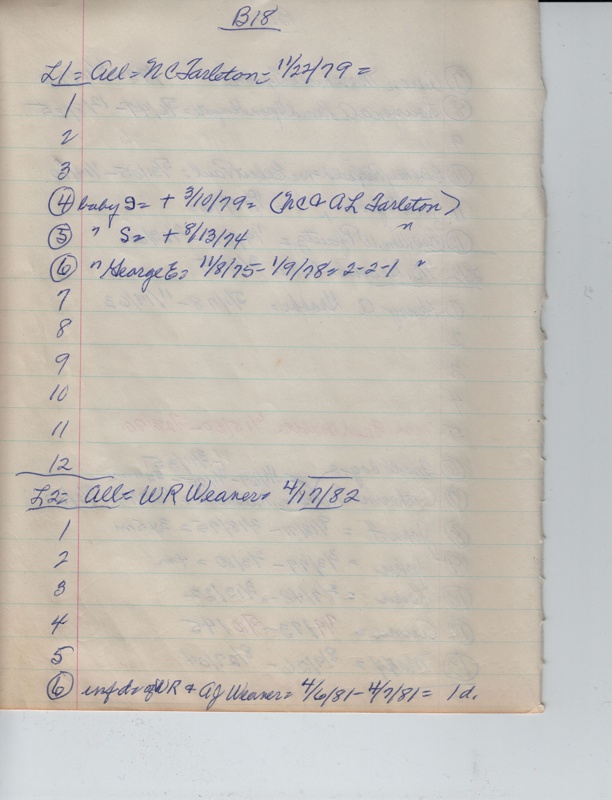 B18
L1 = All = NC Tarleton = 11/22/79 =
1
2
3
4 baby D = + 3/10/79 = (NC & AL Tarleton)
5 " S = + 8/13/74 "
6 " George E = 11/8/75 - 1/9/78 = 2-2-1 "
7
8
9
10
11
12
L2 = All = WR Weaner = 4/17/82
1
2
3
4
5
6 inf dr of WR & AJ Weaner = 4/6/81 - 4/7/81 = 1d.